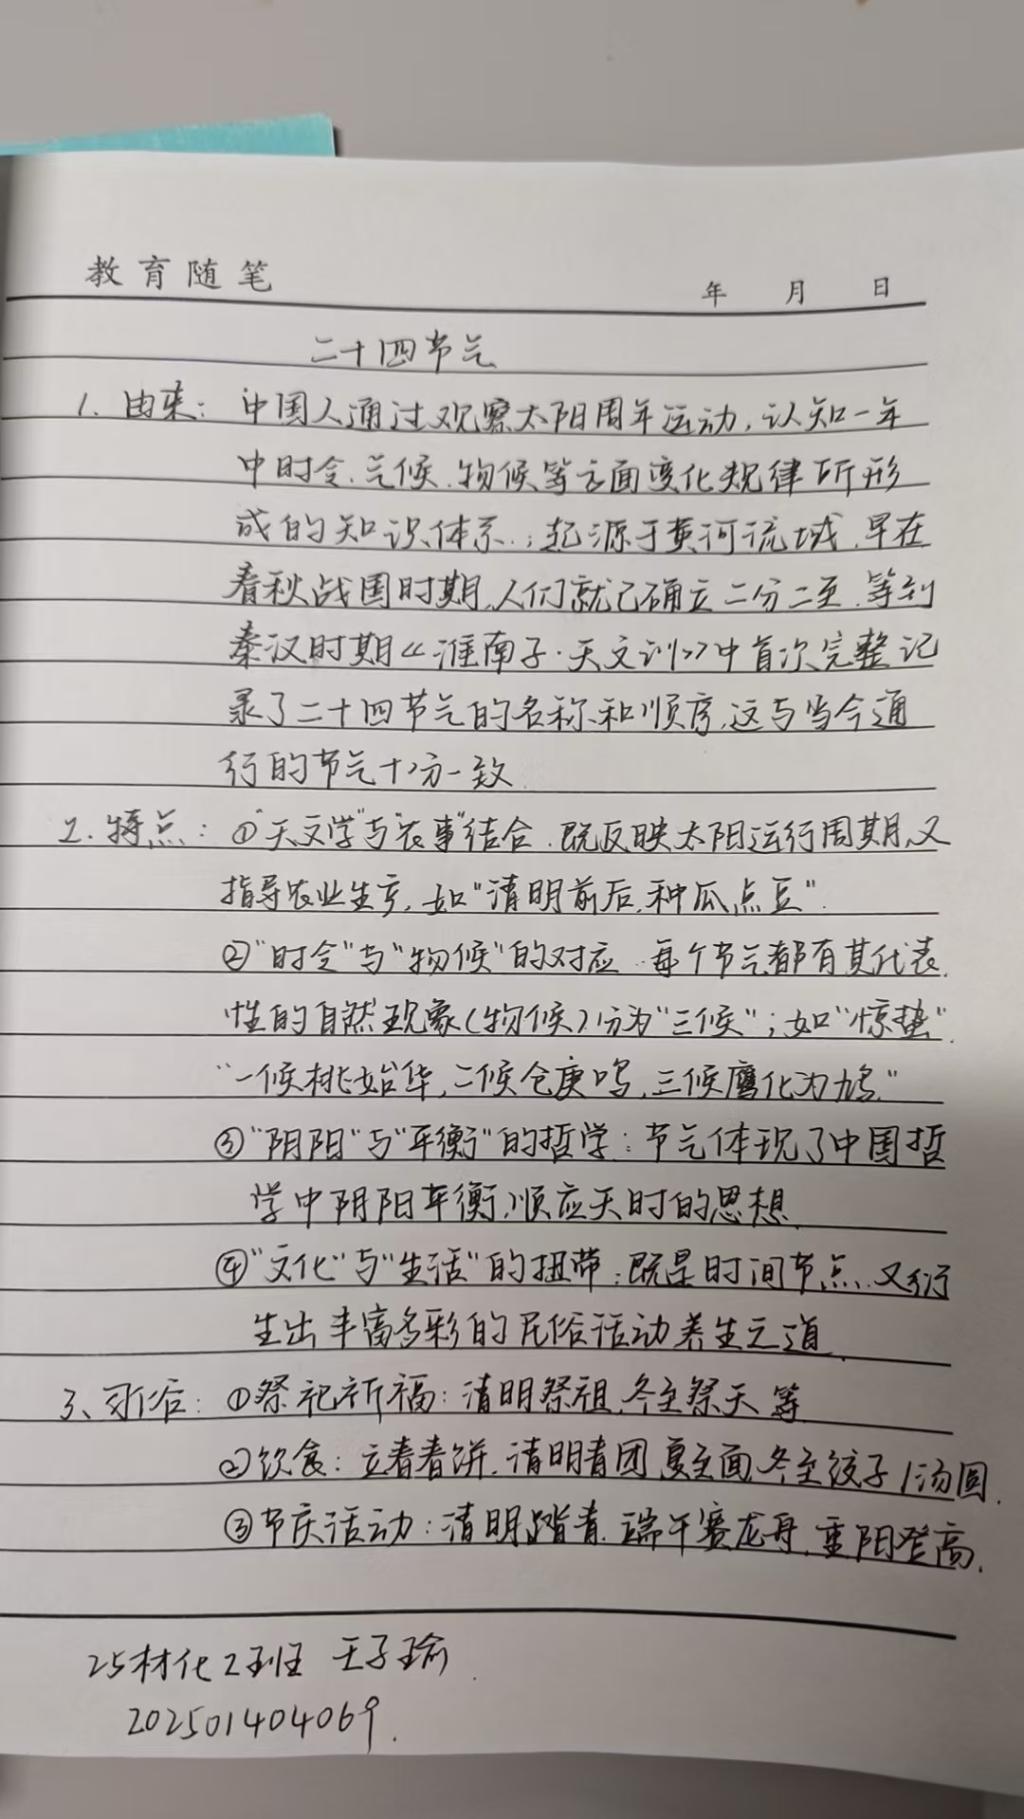 教育随笔
年 月 日
二十四节气
1. 由来：中国人通过观察太阳周年运动，认知一年
中时令、气候、物候等方面变化规律所形
成的知识体系.；起源于黄河流域，早在
春秋战国时期，人们就已确立二分二至，等到
秦汉时期《淮南子·天文训》中首次完整记
录了二十四节气的名称和顺序，这与当今通
行的节气十分一致
2. 特点：①"天文学"与"农事"结合，既反映太阳运行周期，又
指导农业生产，如"清明前后，种瓜点豆".
②"时令"与"物候"的对应，每个节气都有其代表
性的自然现象(物候)分为"三候"；如"惊蛰"
"一候桃始华，二候仓庚鸣，三候鹰化为鸠."
③"阴阳"与"平衡"的哲学：节气体现了中国哲
学中阴阳平衡，顺应天时的思想
④"文化"与"生活"的纽带：既是时间节点，又衍
生出丰富多彩的民俗活动养生之道
3、习俗：①祭祀祈福：清明祭祖，冬至祭天等
②饮食：立春春饼，清明青团，夏至面，冬至饺子/汤圆.
③节庆活动：清明踏青，端午赛龙舟，重阳登高.
25材化2班 王子瑜.
202501404069.